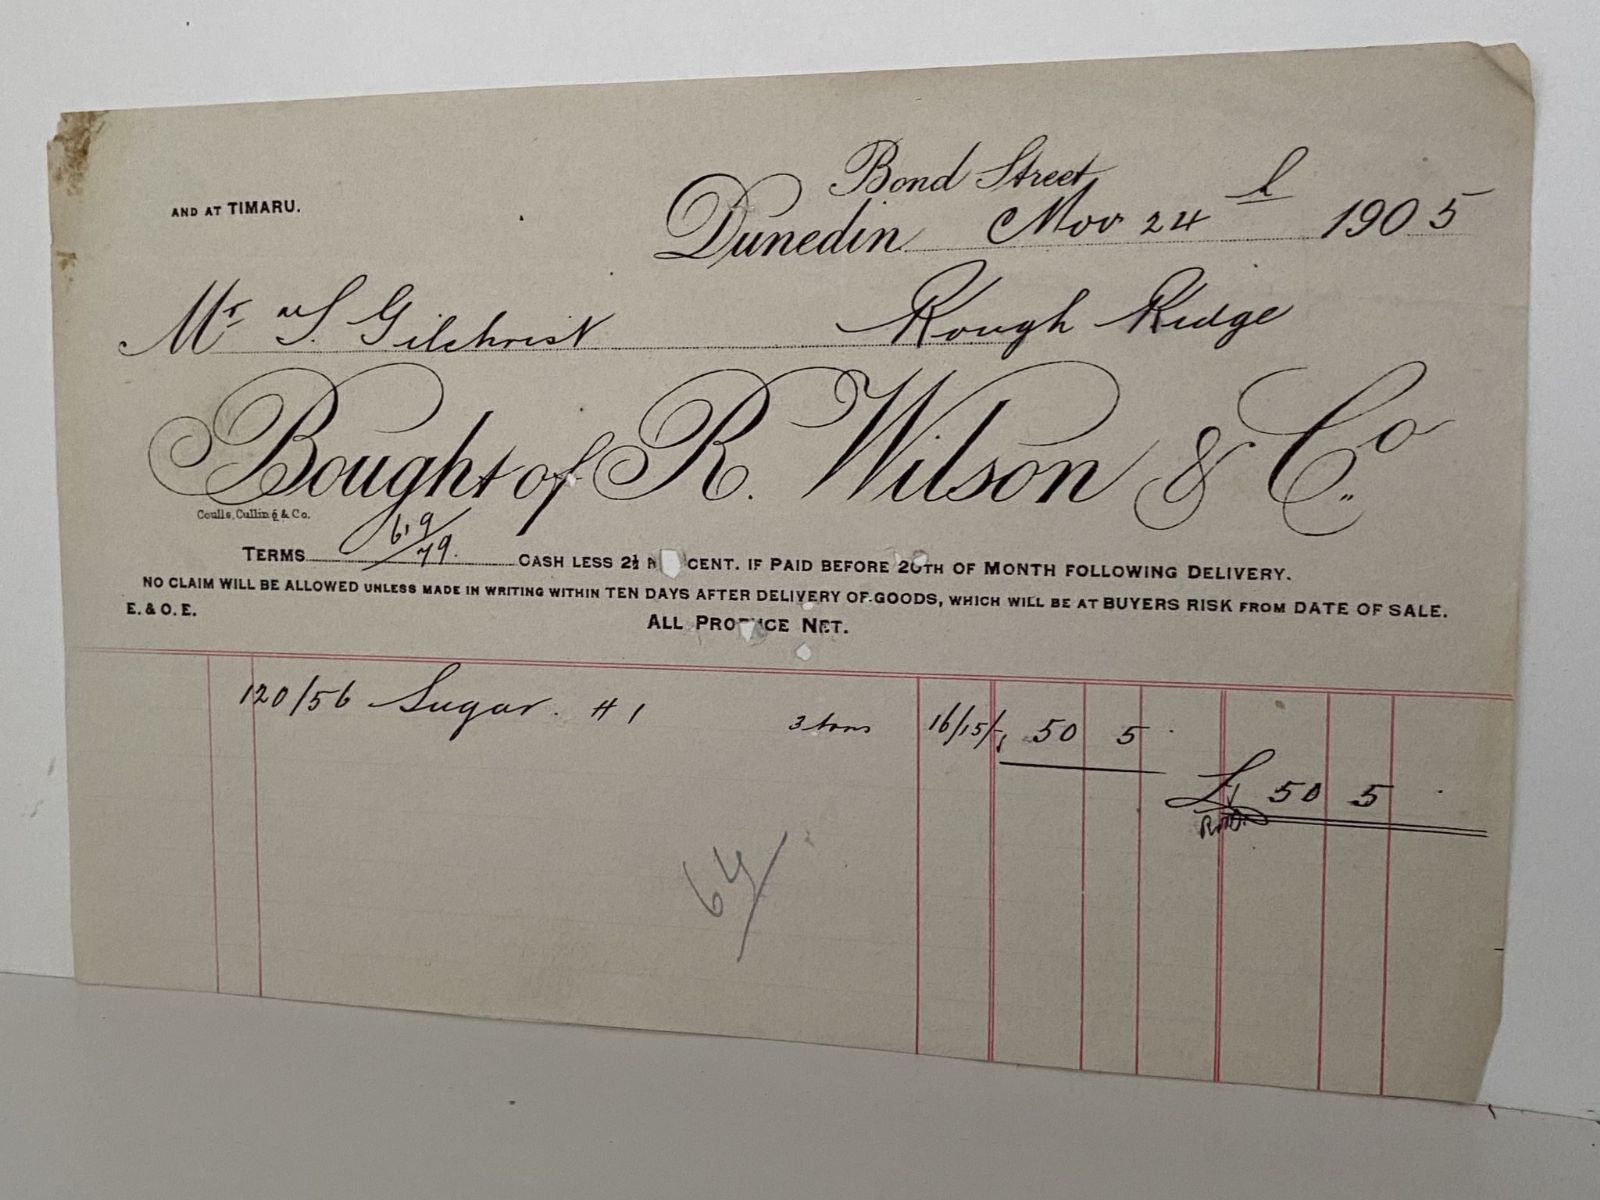 AND AT TIMARU.
Bond Street
Dunedin Nov 24 h 1905
Mr S. Gilchrist Rough Ridge
Bought of R. Wilson & Co.
Coulls, Culling & Co.
TERMS 619/79. CASH LESS 2½ CENT. IF PAID BEFORE 20TH OF MONTH FOLLOWING DELIVERY.
NO CLAIM WILL BE ALLOWED UNLESS MADE IN WRITING WITHIN TEN DAYS AFTER DELIVERY OF GOODS, WHICH WILL BE AT BUYERS RISK FROM DATE OF SALE.
E. & O. E.
ALL PRODUCE NET.
120/56 Sugar. #1 3 tons 16/15/- 50 5 .
£ 50 5 .
64/